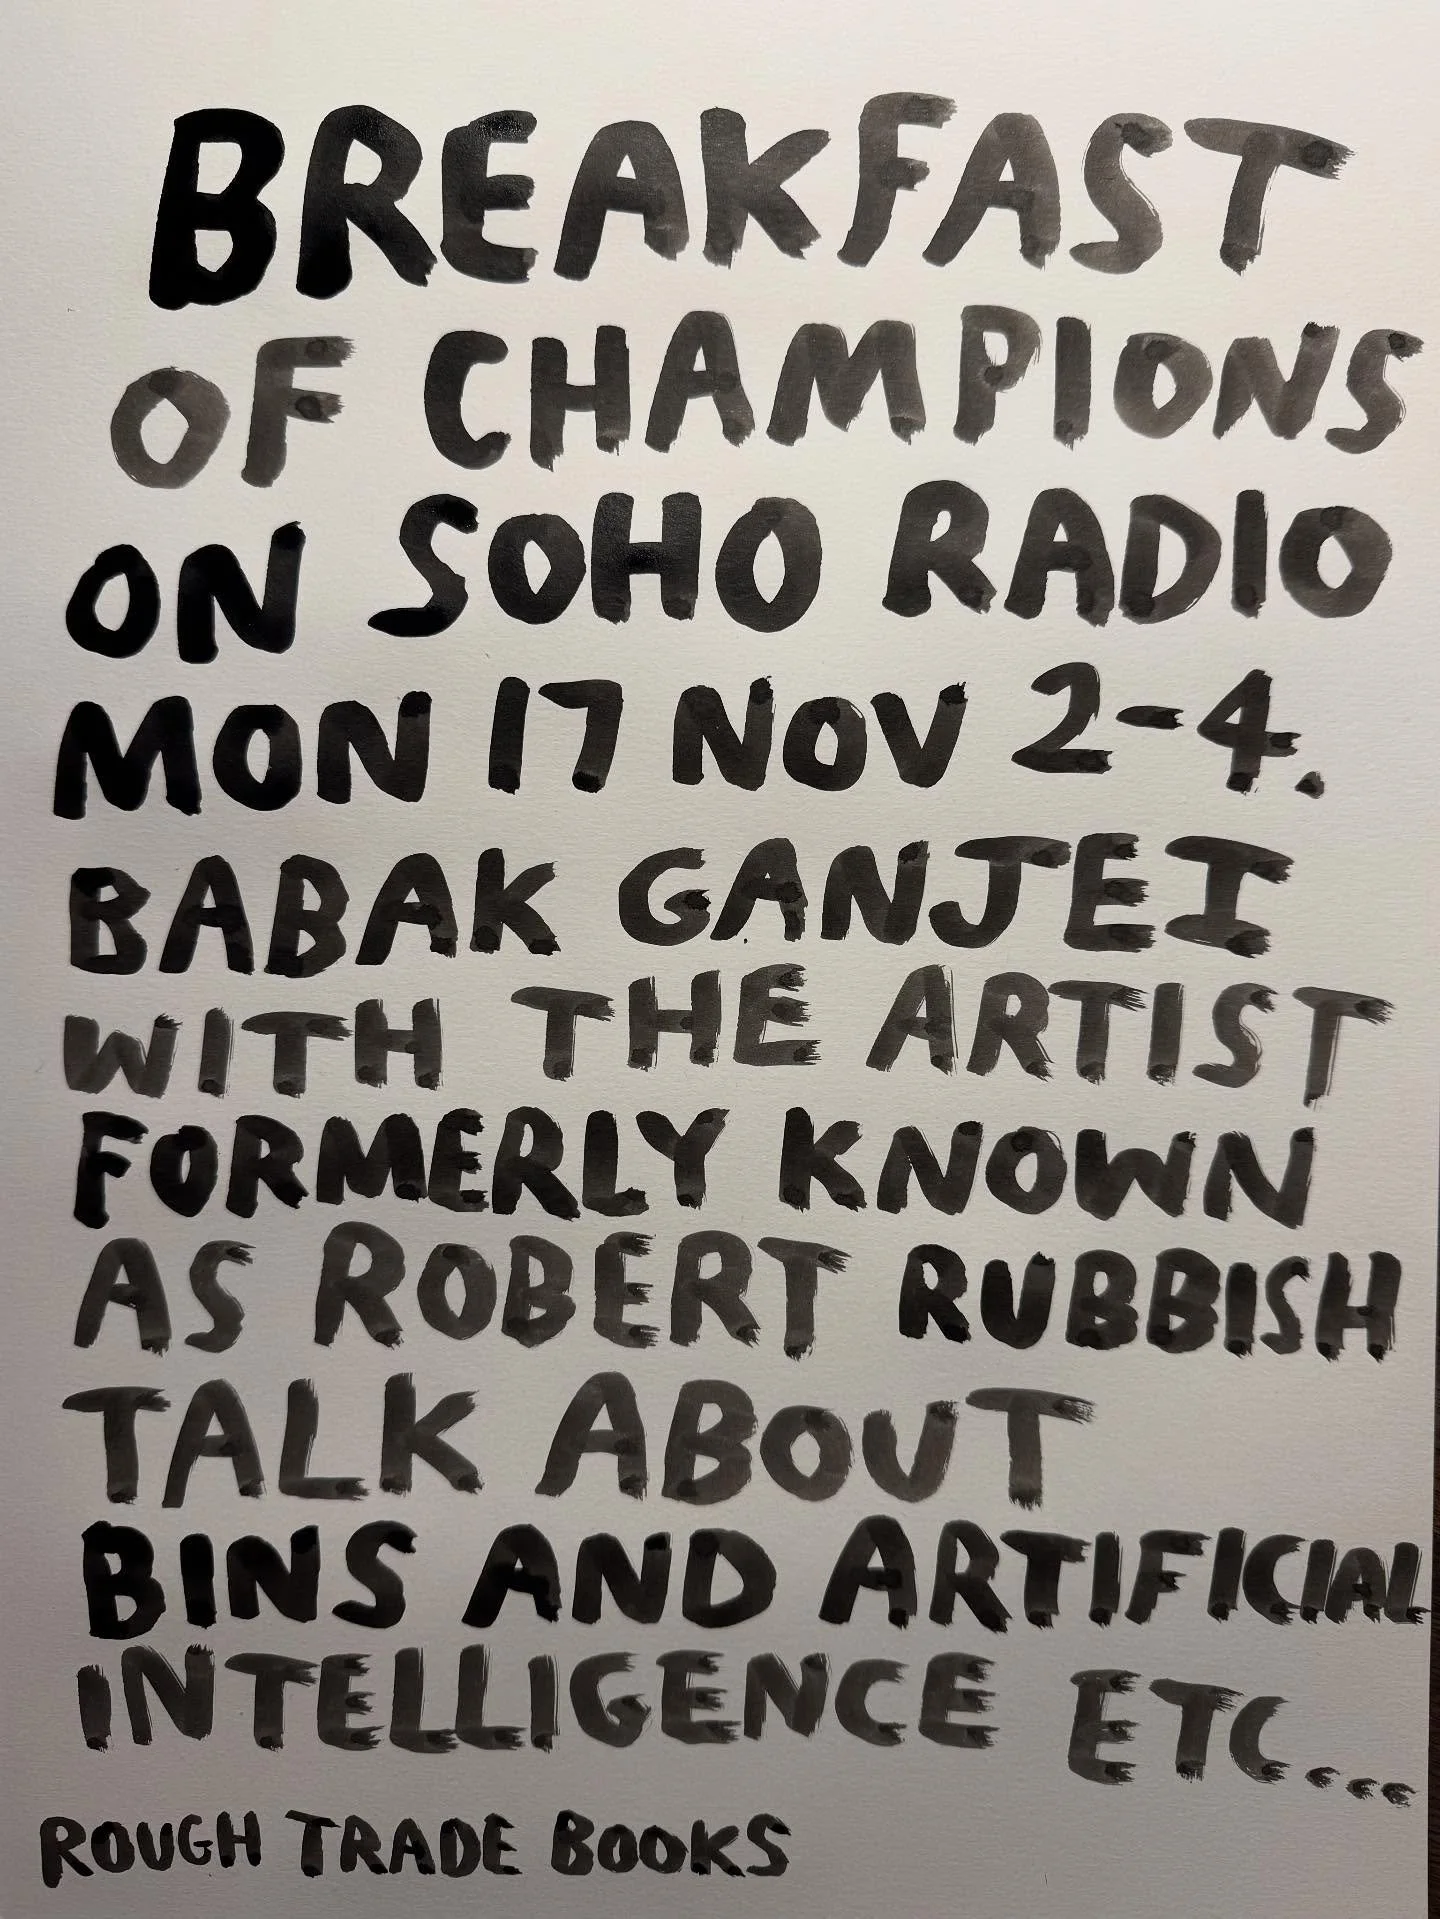 BREAKFAST
OF CHAMPIONS
ON SOHO RADIO
MON 17 NOV 2-4.
BABAK GANJEI
WITH THE ARTIST
FORMERLY KNOWN
AS ROBERT RUBBISH
TALK ABOUT
BINS AND ARTIFICIAL
INTELLIGENCE ETC...
ROUGH TRADE BOOKS